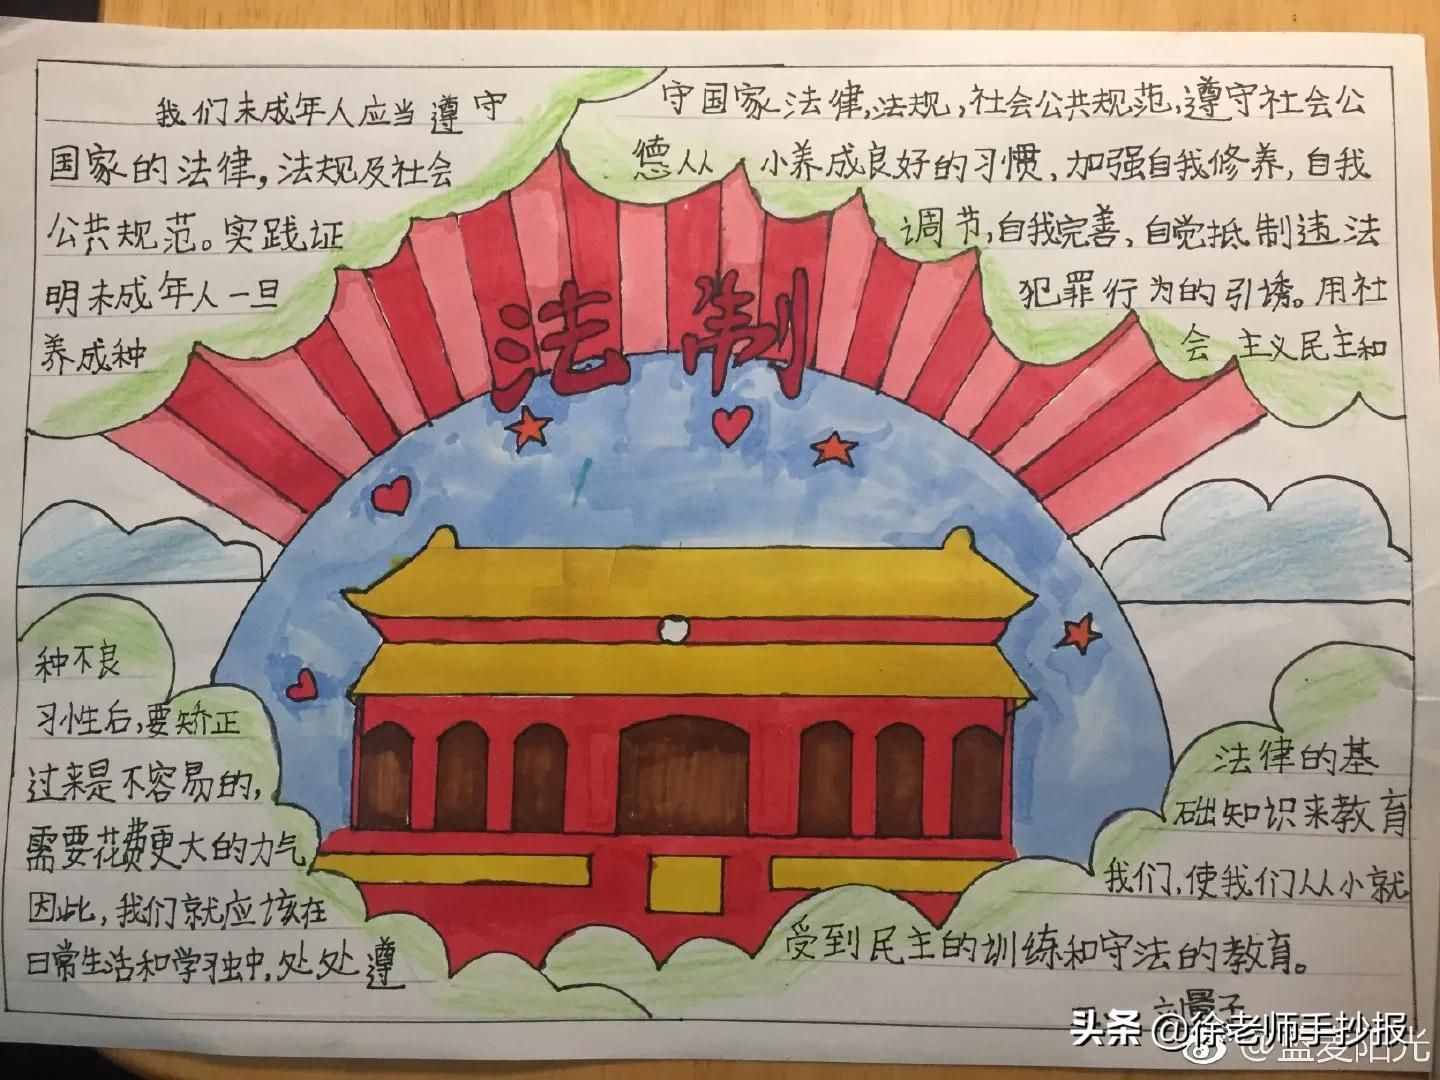 法制
我们未成年人应当遵守
国家的法律,法规及社会
公共规范。实践证
明未成年人一旦
养成种
种不良
习性后,要矫正
过来是不容易的,
需要花费更大的力气
因此,我们就应该在
日常生活和学习中,处处遵
守国家法律,法规,社会公共规范,遵守社会公
德从小养成良好的习惯,加强自我修养,自我
调节,自我完善、自觉抵制违法
犯罪行为的引诱。用社
会主义民主和
法律的基
础知识来教育
我们,使我们从小就
受到民主的训练和守法的教育。
头条 @徐老师手抄报